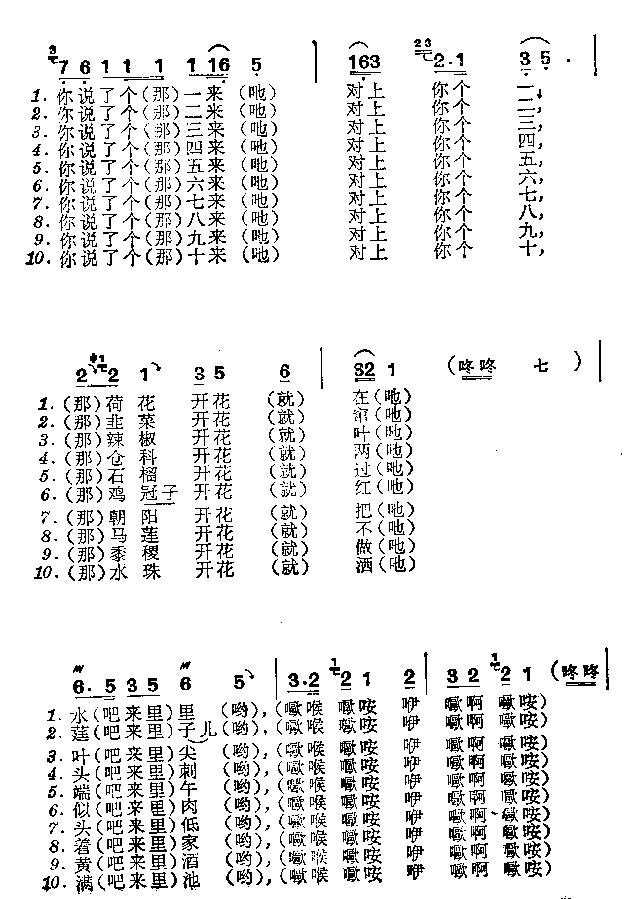 7 6 1 1 1 1 16 5 | 163 2·1 3 5 · |
1. 你说了个(那)一来(吔) 对上 你个 一,
2. 你说了个(那)二来(吔) 对上 你个 二,
3. 你说了个(那)三来(吔) 对上 你个 三,
4. 你说了个(那)四来(吔) 对上 你个 四,
5. 你说了个(那)五来(吔) 对上 你个 五,
6. 你说了个(那)六来(吔) 对上 你个 六,
7. 你说了个(那)七来(吔) 对上 你个 七,
8. 你说了个(那)八来(吔) 对上 你个 八,
9. 你说了个(那)九来(吔) 对上 你个 九,
10. 你说了个(那)十来(吔) 对上 你个 十,
2 2 1 3 5 6 | 32 1 (咚咚 七 ) |
1. (那)荷花 开花 (就) 在(吔)
2. (那)韭菜 开花 (就) (吔)
3. (那)辣椒 开花 (就) 叶(吔)
4. (那)仓科 开花 (就) 两(吔)
5. (那)石榴 开花 (就) 过(吔)
6. (那)鸡冠子 开花 (就) 红(吔)
7. (那)朝阳 开花 (就) 把(吔)
8. (那)马莲 开花 (就) 不(吔)
9. (那)黍稷 开花 (就) 做(吔)
10. (那)水珠 开花 (就) 洒(吔)
6. 5 3 5 6 5 | 3·2 2 1 2 | 3 2 2 1 (咚咚 |
1. 水(吧来里)里 (哟), (嗽喉 嗽咹 咿 嗽啊 嗽咹)
2. 莲(吧来里)子儿(哟), (嗽喉 嗽咹 咿 嗽啊 嗽咹)
3. 叶(吧来里)尖 (哟), (嗽喉 嗽咹 咿 嗽啊 嗽咹)
4. 头(吧来里)刺 (哟), (嗽喉 嗽咹 咿 嗽啊 嗽咹)
5. 端(吧来里)午 (哟), (嗽喉 嗽咹 咿 嗽啊 嗽咹)
6. 似(吧来里)肉 (哟), (嗽喉 嗽咹 咿 嗽啊 嗽咹)
7. 头(吧来里)低 (哟), (嗽喉 嗽咹 咿 嗽啊 嗽咹)
8. 着(吧来里)家 (哟), (嗽喉 嗽咹 咿 嗽啊 嗽咹)
9. 黄(吧来里)酒 (哟), (嗽喉 嗽咹 咿 嗽啊 嗽咹)
10. 满(吧来里)池 (哟), (嗽喉 嗽咹 咿 嗽啊 嗽咹)